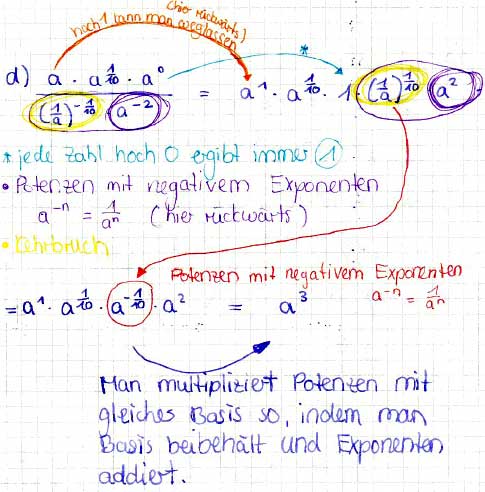 (hier rückwärts)
hoch 1 kann man weglassen
*
d) a · a^(1/10) · a^0 / ((1/a)^(-1/10) · a^(-2)) = a^1 · a^(1/10) · 1 · (1/a)^(1/10) · a^2
* jede Zahl hoch 0 ergibt immer 1
• Potenzen mit negativem Exponenten
a^(-n) = 1/a^n (hier rückwärts)
• Kehrbruch
Potenzen mit negativem Exponenten
a^(-n) = 1/a^n
= a^1 · a^(1/10) · a^(-1/10) · a^2 = a^3
Man multipliziert Potenzen mit
gleiches Basis so, indem man
Basis beibehält und Exponenten
addiert.